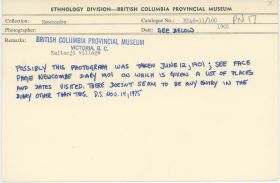 ETHNOLOGY DIVISION—BRITISH COLUMBIA PROVINCIAL MUSEUM
Collection: Newcombe Catalogue No.: PN 17
Photographer: Date: SEE BELOW 1901
Remarks: BRITISH COLUMBIA PROVINCIAL MUSEUM
VICTORIA, B. C.
village
POSSIBLY THIS PHOTOGRAPH WAS TAKEN JUNE 12, 1901; SEE FACE
PAGE NEWCOMBE DIARY 1901 ON WHICH IS GIVEN A LIST OF PLACES
AND DATES VISITED. THERE DOESN'T SEEM TO BE ANY ENTRY IN THE
DIARY OTHER THAN THIS. D.S. NOV. 14, 1975